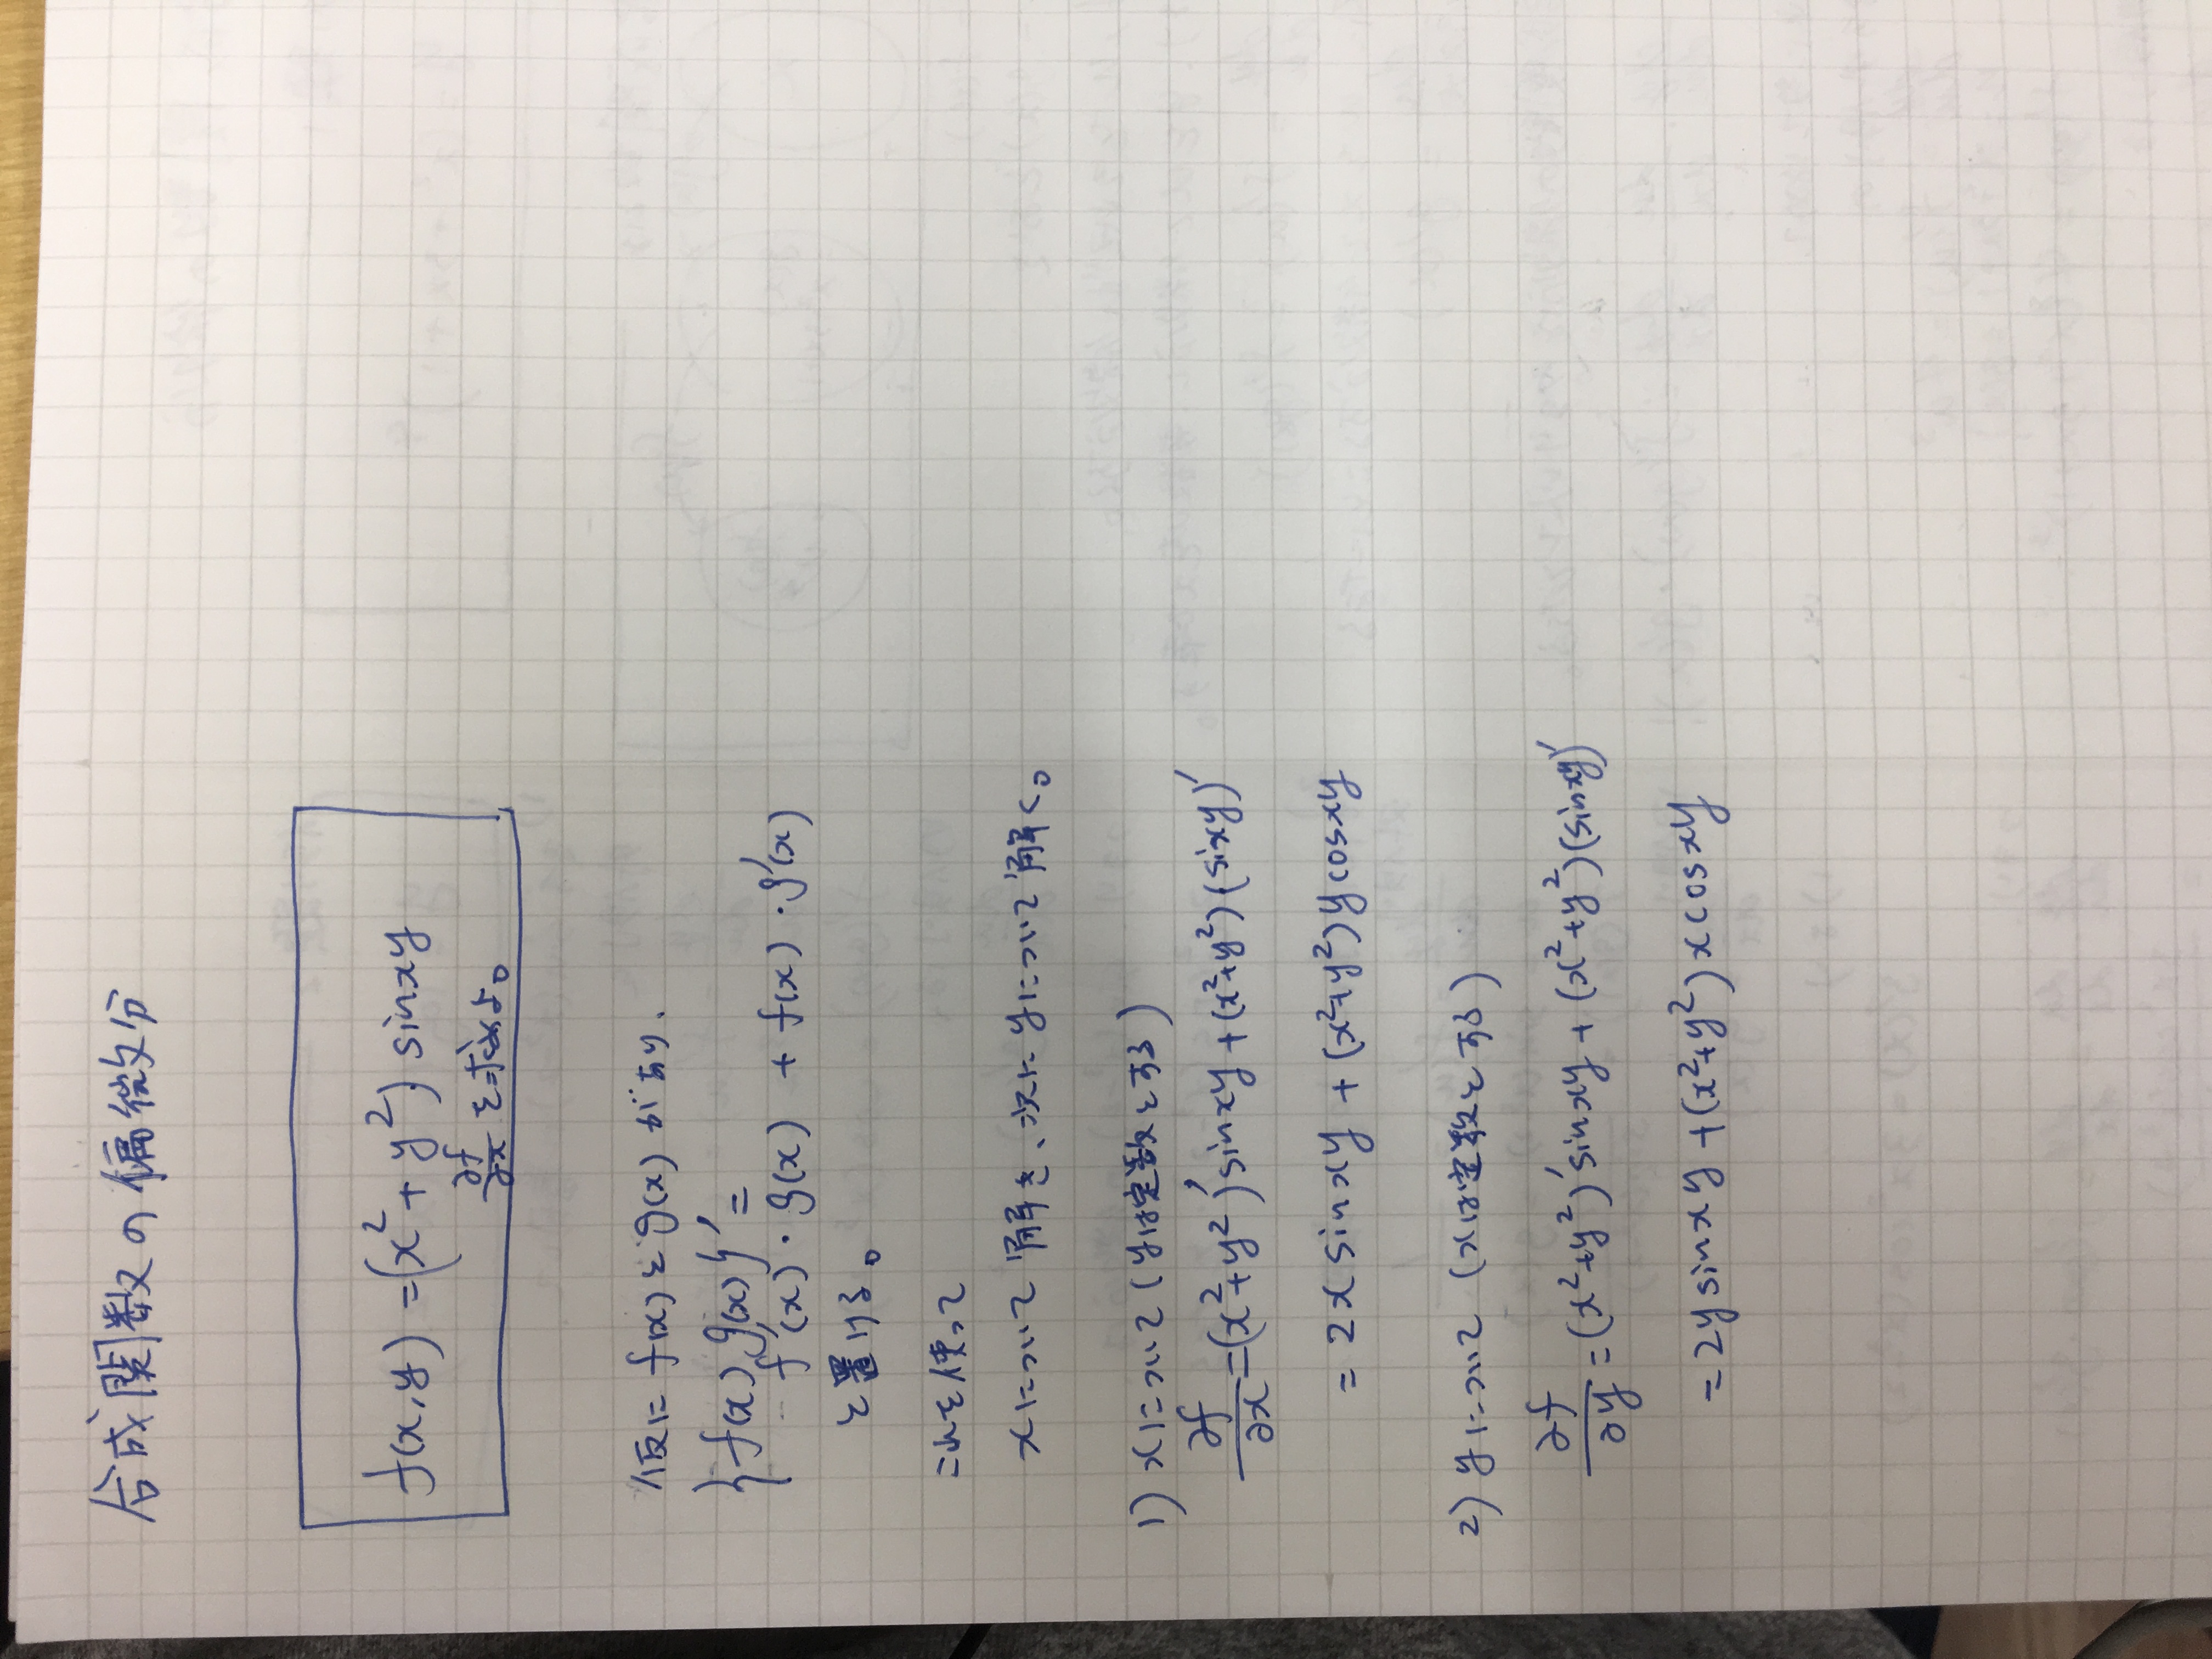 合成関数の偏微分
f(x,y) = (x²+y²) sinxy
∂f/∂x を求めよ。
仮に f(x)とg(x)があり、
{f(x)g(x)}' =
f'(x)・g(x) + f(x)・g'(x)
と置ける。
これを使って
xについて解き、次にyについて解く。
1) xについて(yは定数とする)
∂f/∂x = (x²+y²)'sinxy + (x²+y²)(sixy)'
= 2x sinxy + (x²+y²)y cosxy
2) yについて (xは定数とする)
∂f/∂y = (x²+y²)'sinxy + (x²+y²)(sinxy)'
= 2y sinxy + (x²+y²) x cosxy